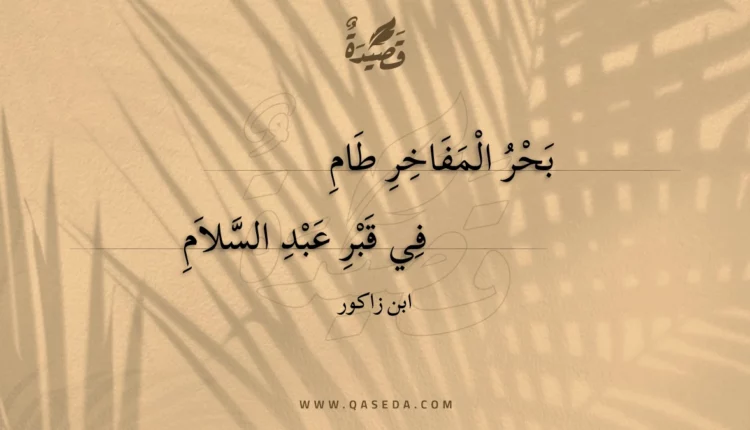 قَصِيْدَةٌ
بَحْرُ الْمَفَاخِرِ طَامِ
فِي قَبْرِ عَبْدِ السَّلاَمِ
ابن زاكور
WWW.QASEDA.COM